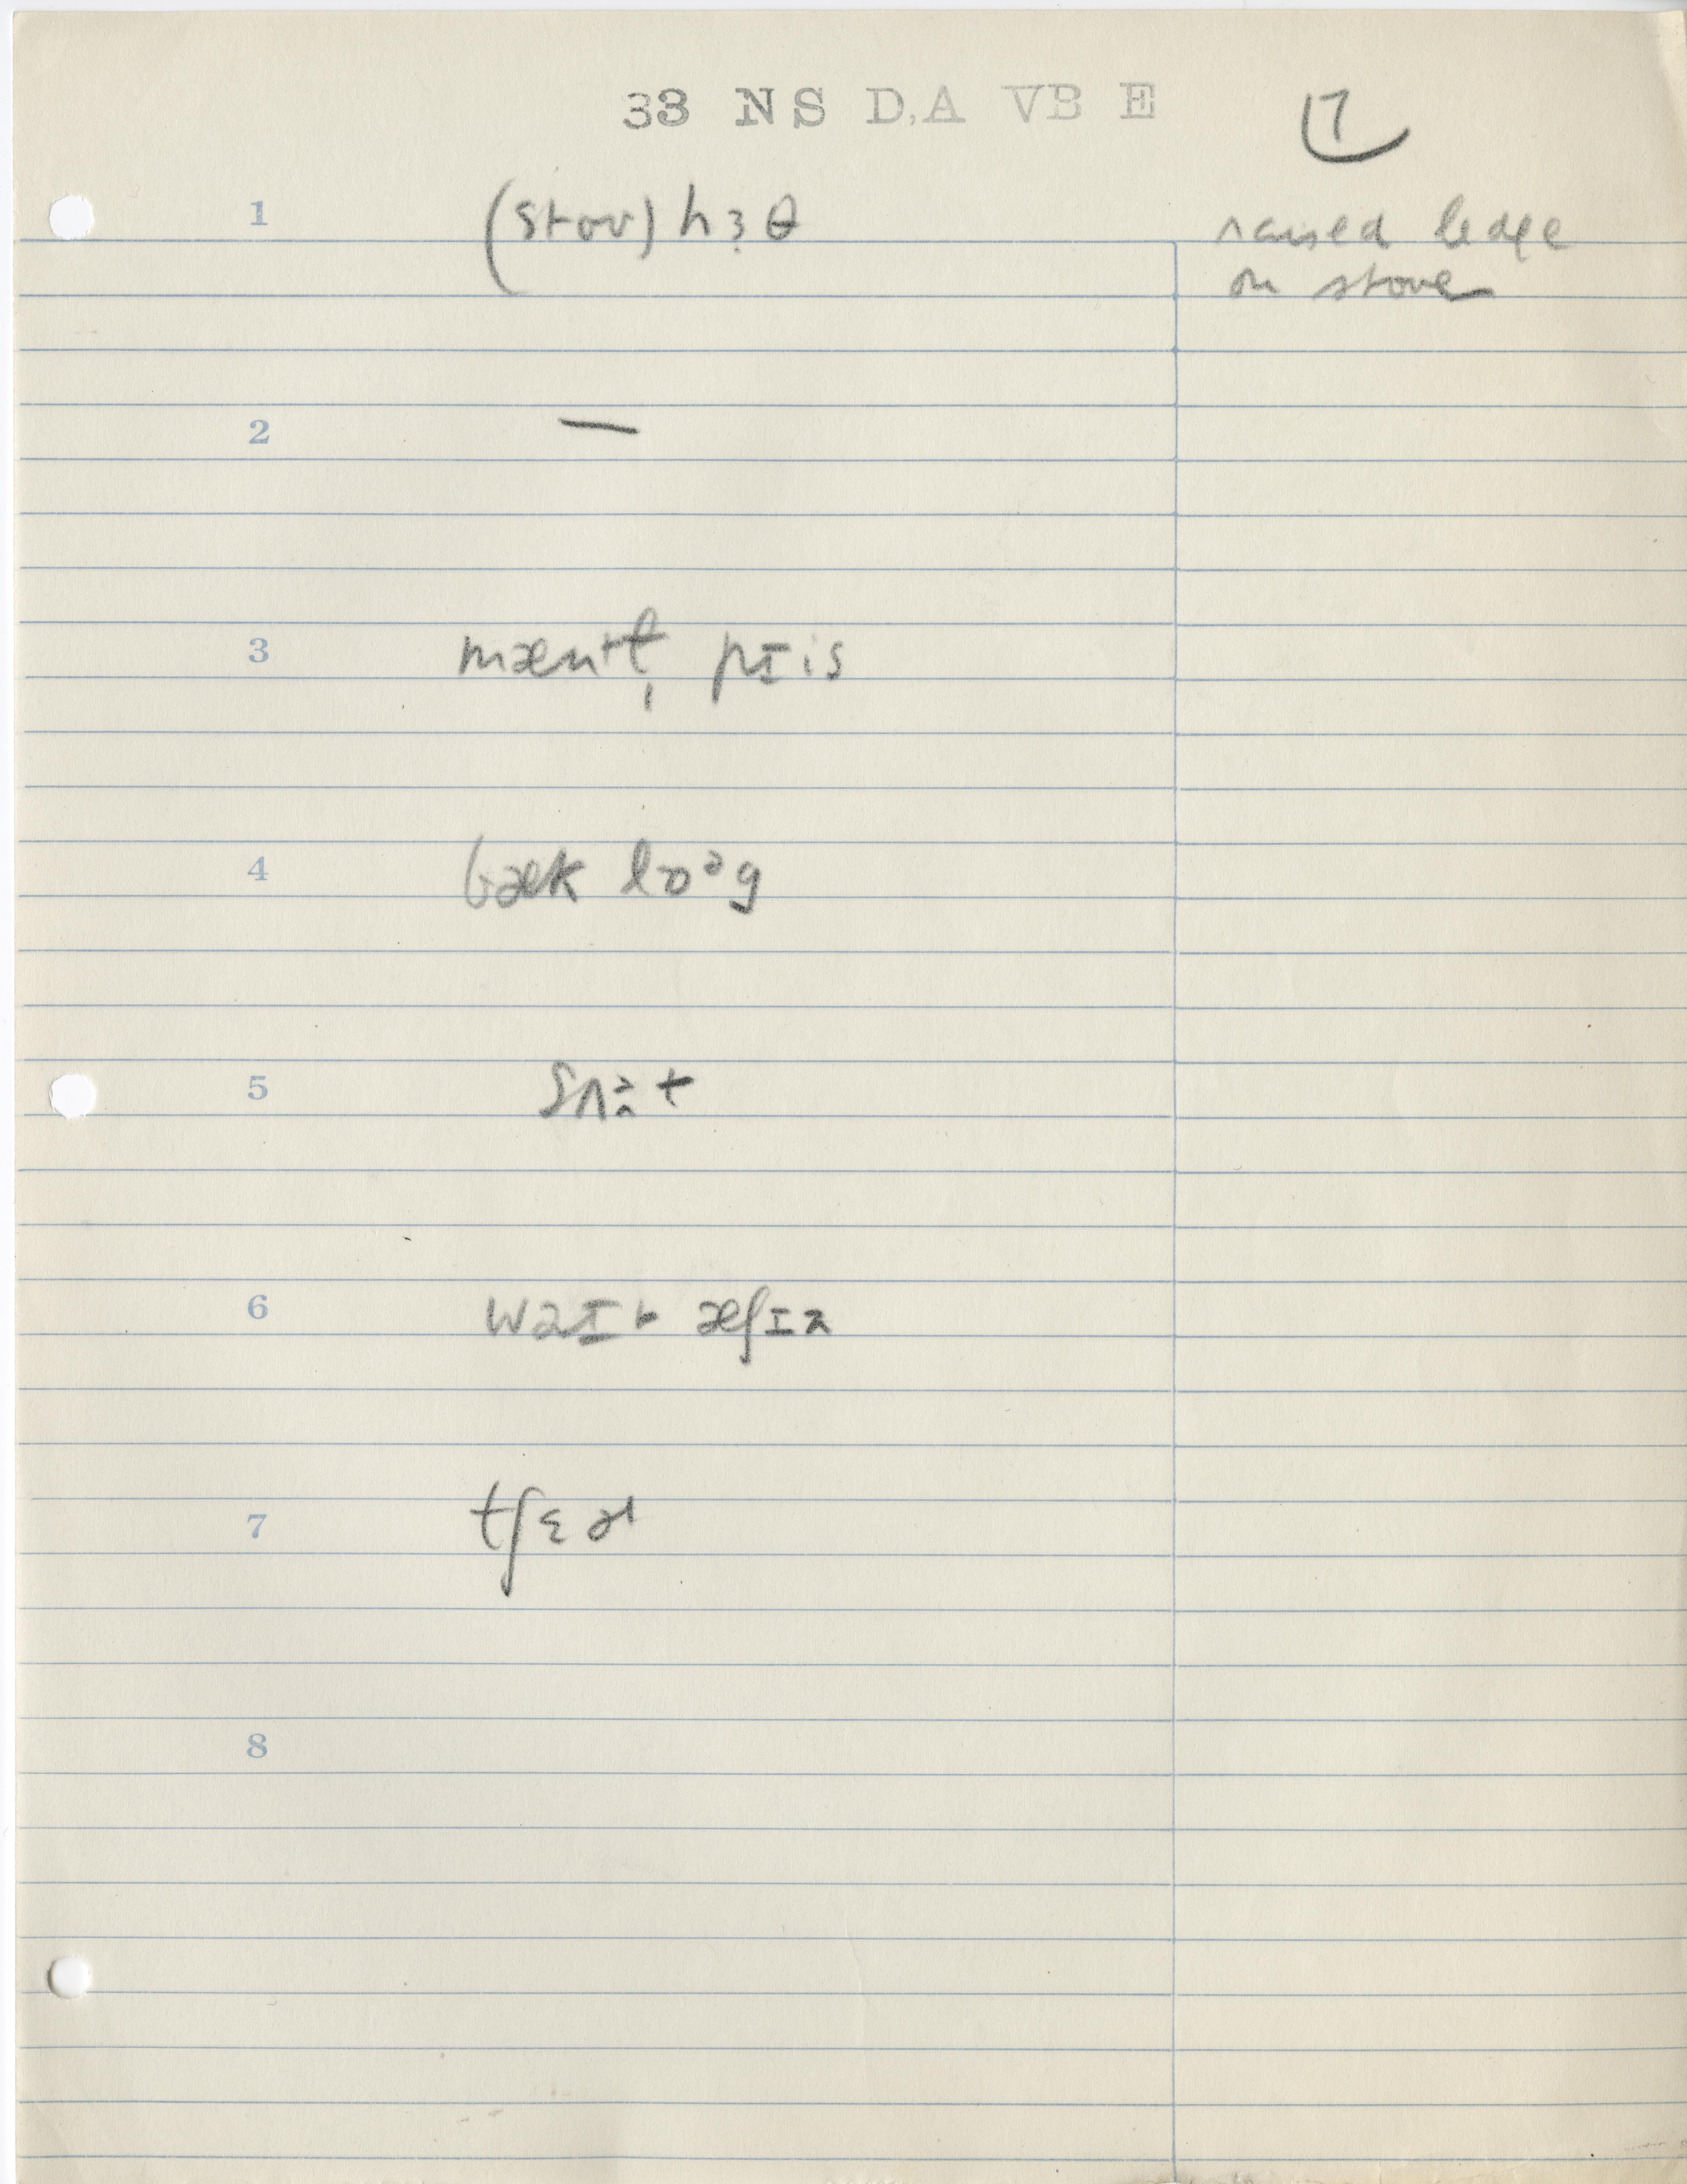 33 N S D,A VB E 17
1 (stov) hɜ̣θ raised ledge
on stove
2 —
3 mæntɫ̩ pɪis
4 bæk lɒᵊg
5
6 waɪt æʃɪz
7 tʃɛɚ
8